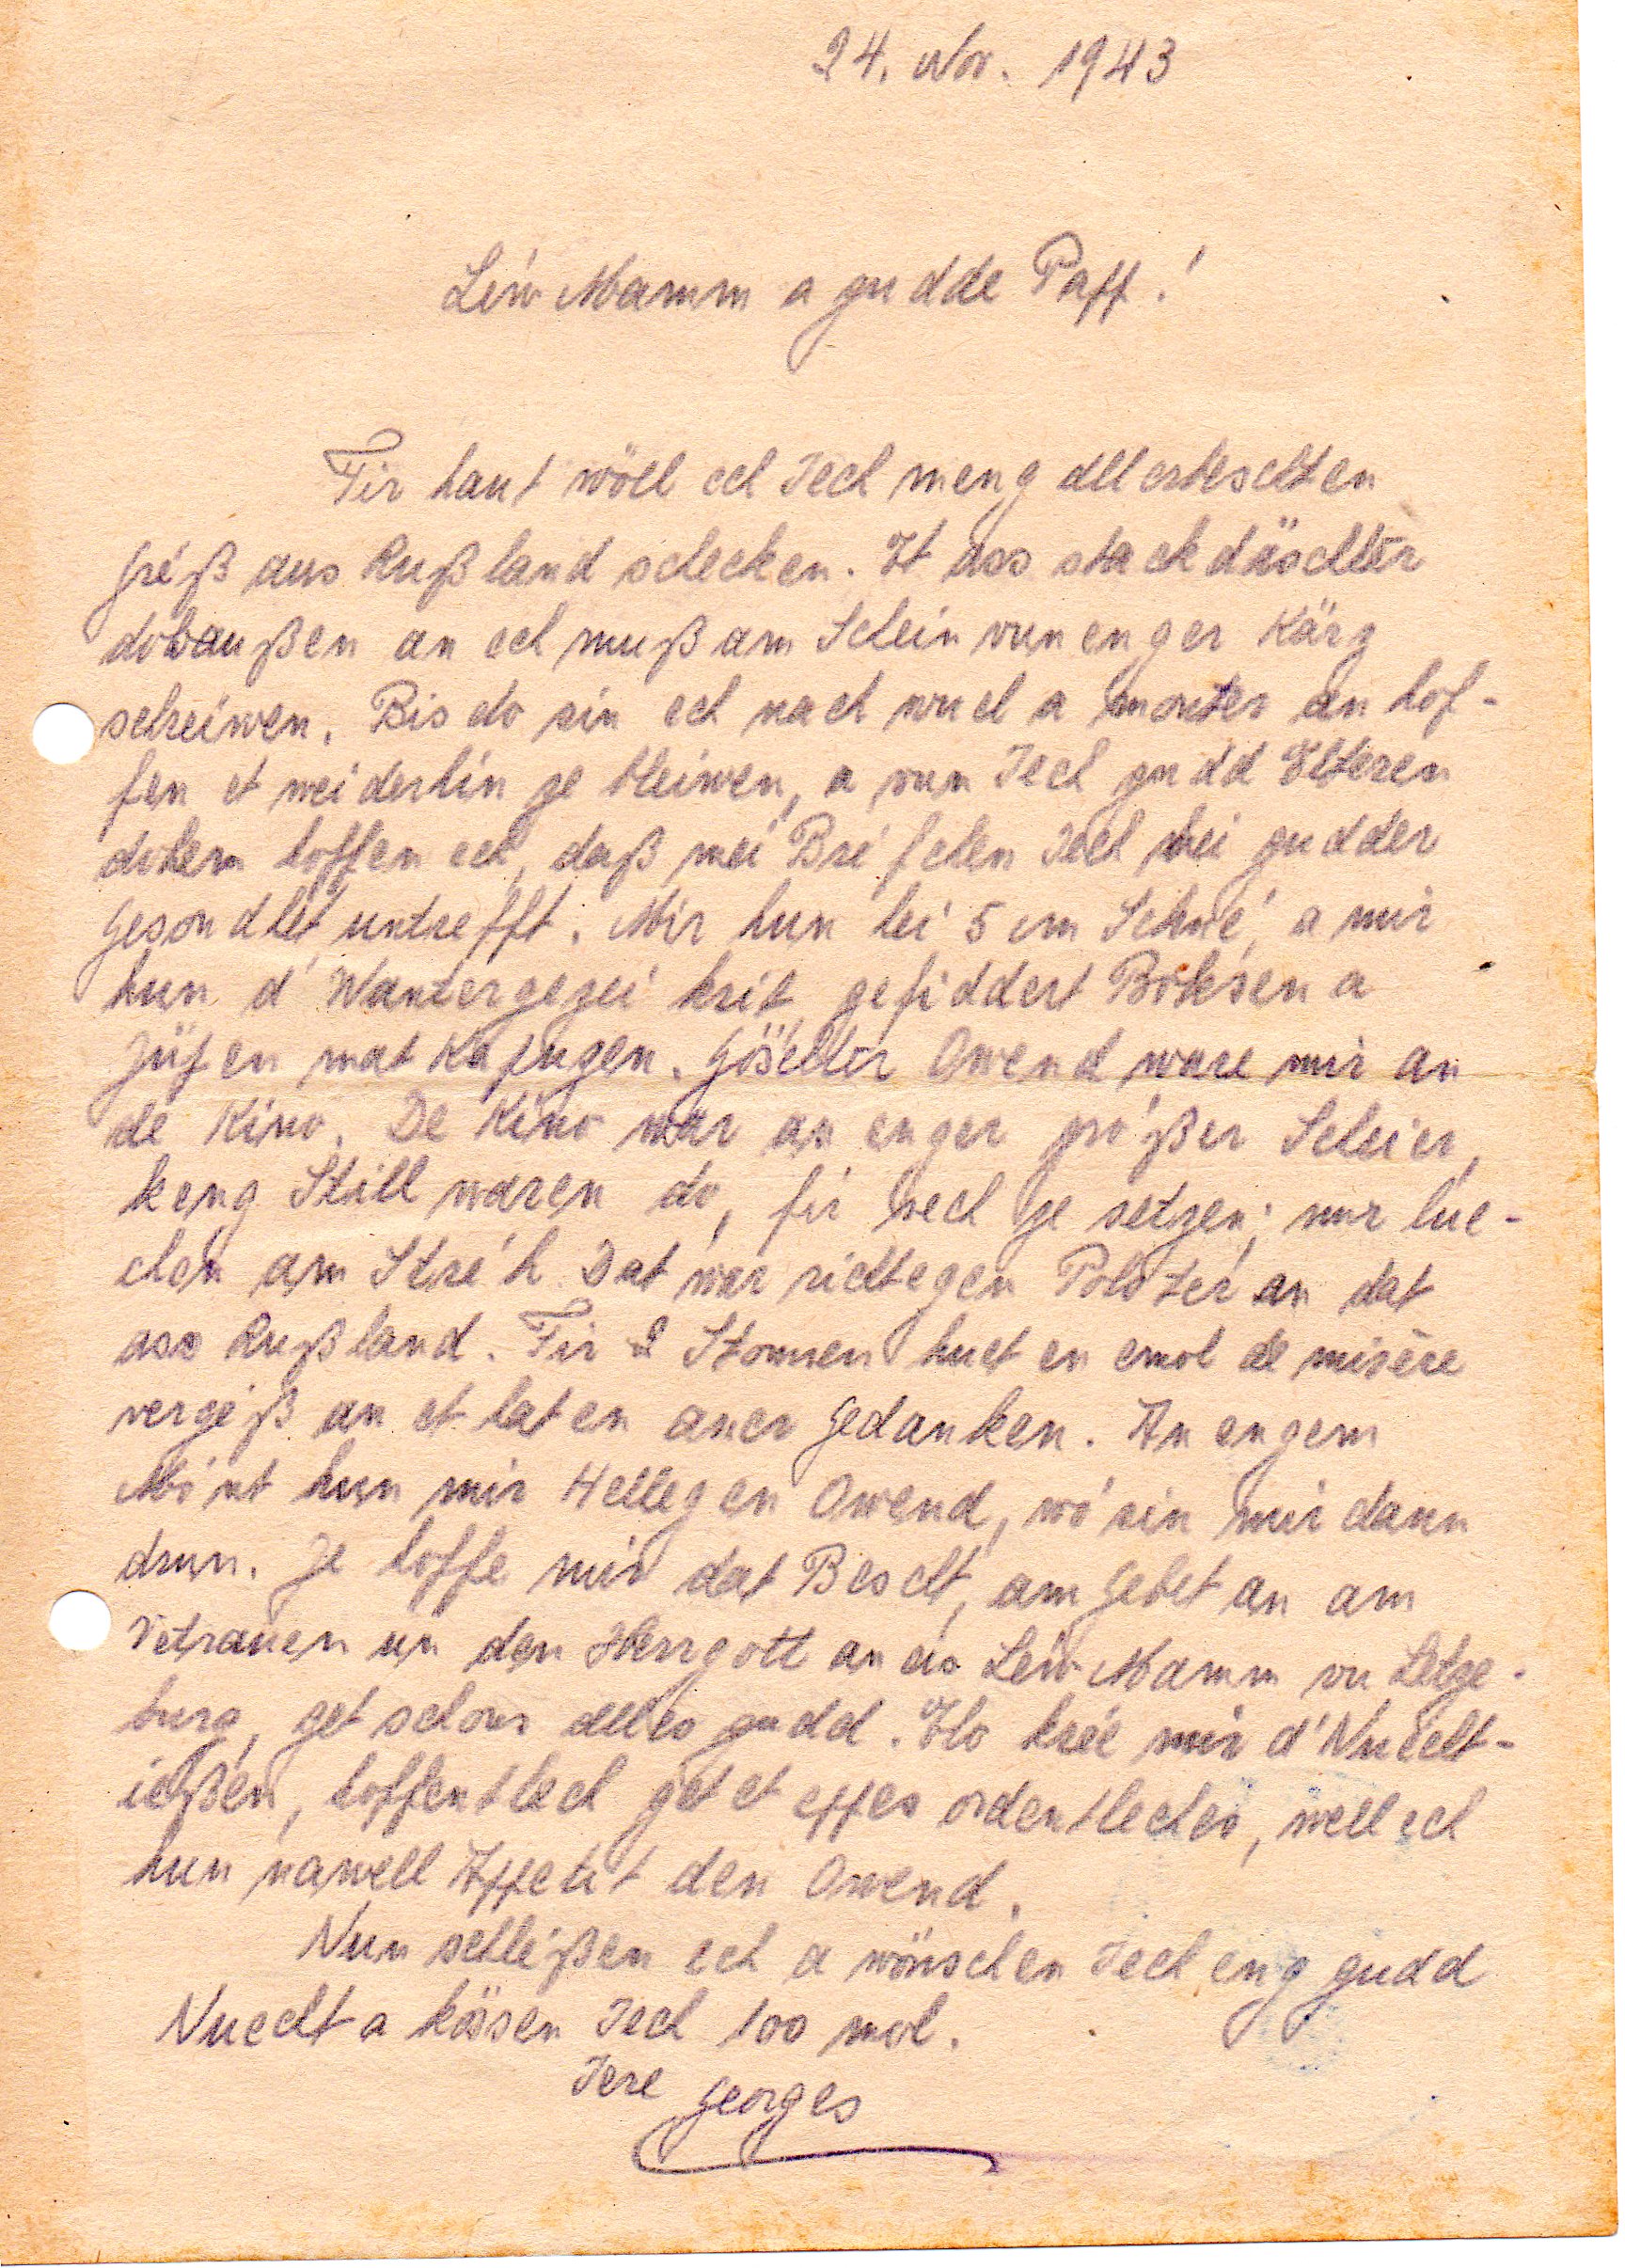 24. Nov. 1943
Léiw Mamm a gudde Papp!
Fir haut wöll ech Iech meng allerbeschten
Gréß aus Rußland schecken. Et ass stackdäischter
dobaußen an ech muß am Schein vun enger Kärz
schreiwen. Bis do sin ech nach wuel a monter an hof-
fen et weiderhin ze bleiwen, a vun Iech gudd Elteren
dohem hoffen ech, daß mei Bréifchen Iech bei gudder
Gesondhét untrefft. Mir hun hei 5 cm Schné, a mir
hun d'Wantergezei krit, gefiddert Boksen a
Jüpen mat Kapuzen. Göschter Owend ware mir an
de Kino. De Kino war an enger gró'ßer Scheier,
keng Still waren do, fir sech ze setzen; mir lue-
chen am Stré'h. Dat war richtegen Polster an dat
ass Rußland. Fir 2 Stonnen huet en emol de misère
vergéß an et hat en aner Gedanken. An engem
Mo'nt hun mir Hellegen Owend, wó sin mir dann
drun. Ze hoffe mir dat Bescht, am Gebet an am
Vetrauen un den Herrgott an eis Léiw Mamm vu Letze-
burg, get schons alles gudd. Elo krée mir d'Nuecht-
ießen, hoffentlech get et eppes ordentleches, well ech
hun nawell Appetit den Owend.
Nun schléißen ech a wönschen Iech eng gudd
Nuecht a kössen Iech 100 mol.
Iere Georges